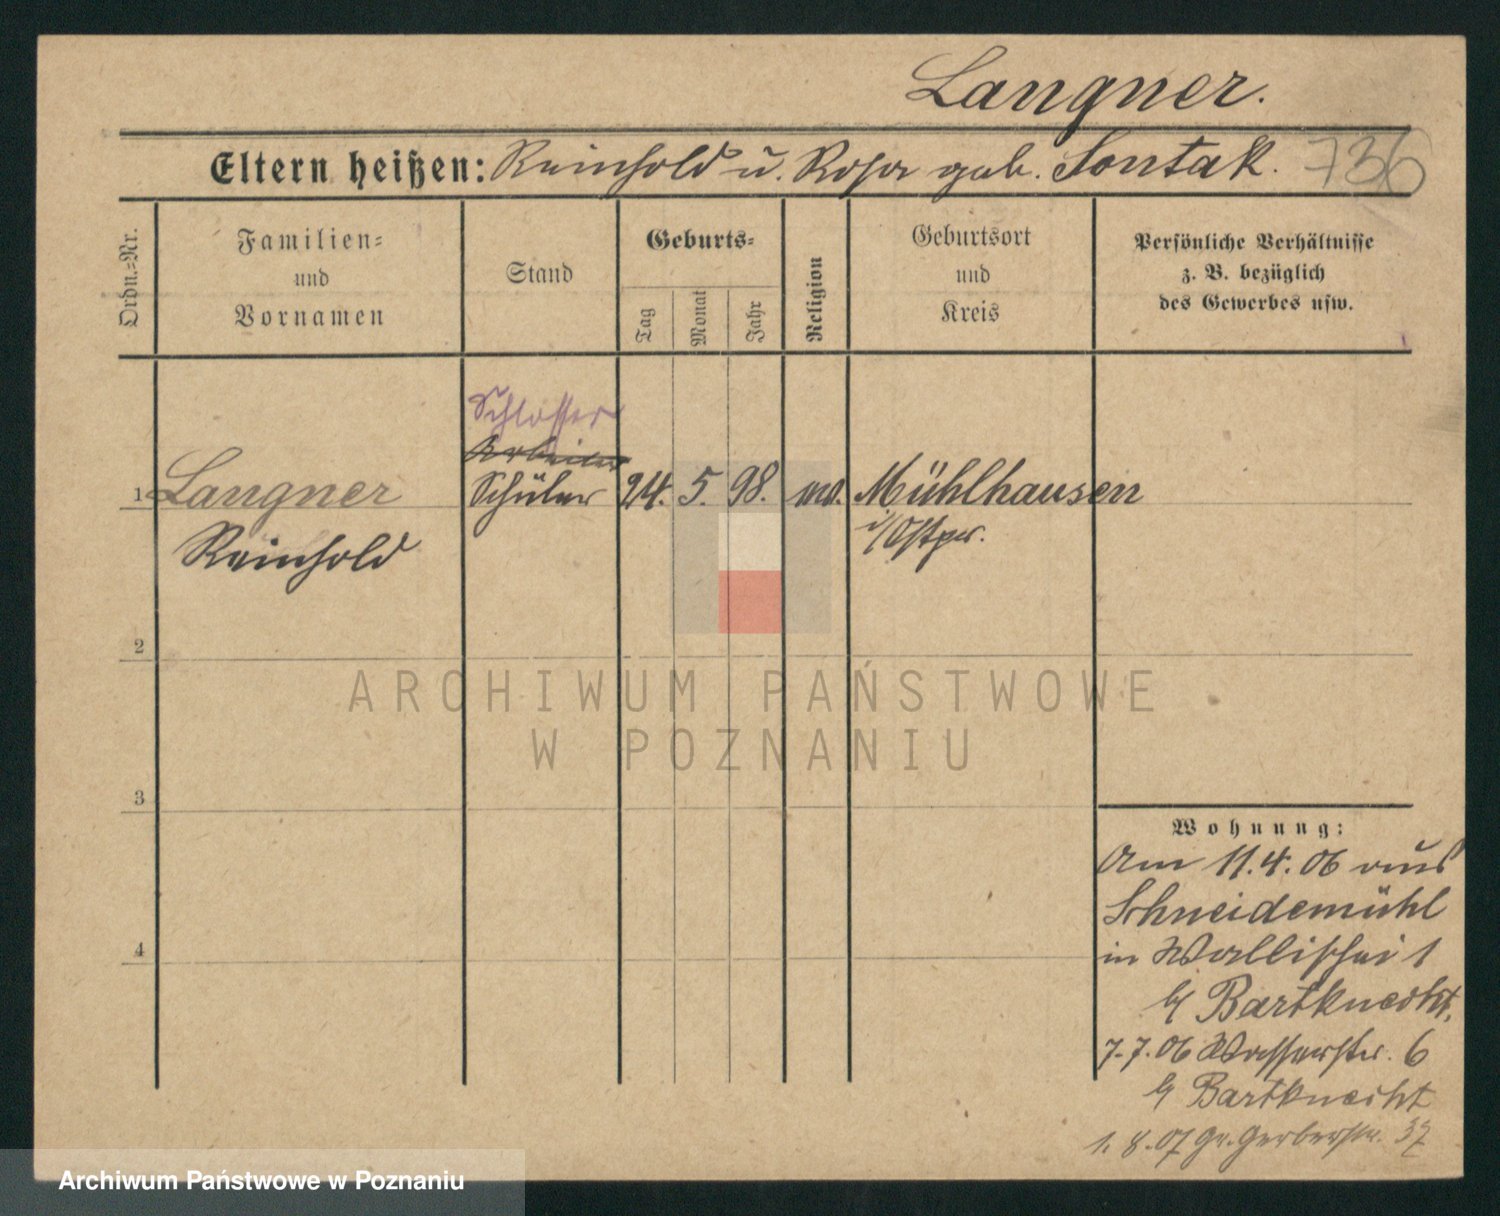 Langner.
Eltern heißen: Reinhold u. Rosa geb. Sontak. 736
Ordn.=Nr.
Familien=
und
Vornamen
Stand
Geburts=
Tag
Monat
Jahr
Religion
Geburtsort
und
Kreis
Persönliche Verhältnisse
z. B. bezüglich
des Gewerbes usw.
Schlosser
Arbeiter
1 Langner Schüler 24. 5. 98. ev. Mühlhausen
Reinhold i/Ostpr.
2
ARCHIWUM PAŃSTWOWE
W POZNANIU
3
Wohnung:
Am 11.4.06 aus
Schneidemühl
in Wallischei 1
b/ Bartknecht.
4
7.7.06 Wasserstr. 6
b/ Bartknecht
1.8.07 Gr. Gerberstr. 37
Archiwum Państwowe w Poznaniu